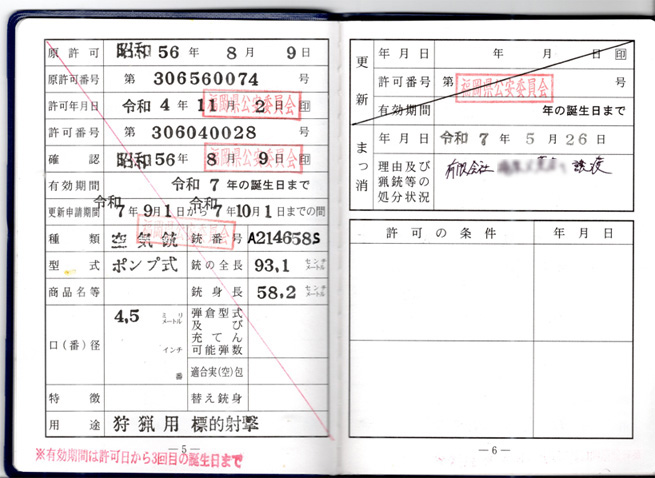 原許可 昭和56年 8月 9日
原許可番号 第 306560074 号
許可年月日 令和 4年 11月 2日 印
福岡県公安委員会
許可番号 第 306040028 号
確認 昭和56年 8月 9日 印
福岡県公安委員会
有効期間 令和 7 年の誕生日まで
更新申請期間 令和7年9月1日から令和7年10月1日までの間
福岡県公安委員会
種類 空気銃 銃番号 A214658S
型式 ポンプ式 銃の全長 93,1 センチメートル
商品名等 銃身長 58,2 センチメートル
口(番)径 4,5 ミリメートル インチ 番
弾倉型式及び充てん可能弾数
適合実(空)包
特徴 替え銃身
用途 狩猟用 標的射撃
―5―
※有効期間は許可日から3回目の誕生日まで
更新 年月日 年 月 日 印
許可番号 第 号
福岡県公安委員会
有効期間 年の誕生日まで
まつ消 年月日 令和 7 年 5 月 26 日
理由及び猟銃等の処分状況 有限会社 譲渡
許可の条件 年月日
―6―